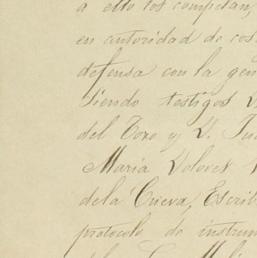 a ello los compelan,
en autoridad de cos
defensa con la gen
siendo testigos D
del Toro y D. Jua
Maria Dolores
de la Cueva, Escrib
protocolo de instrum